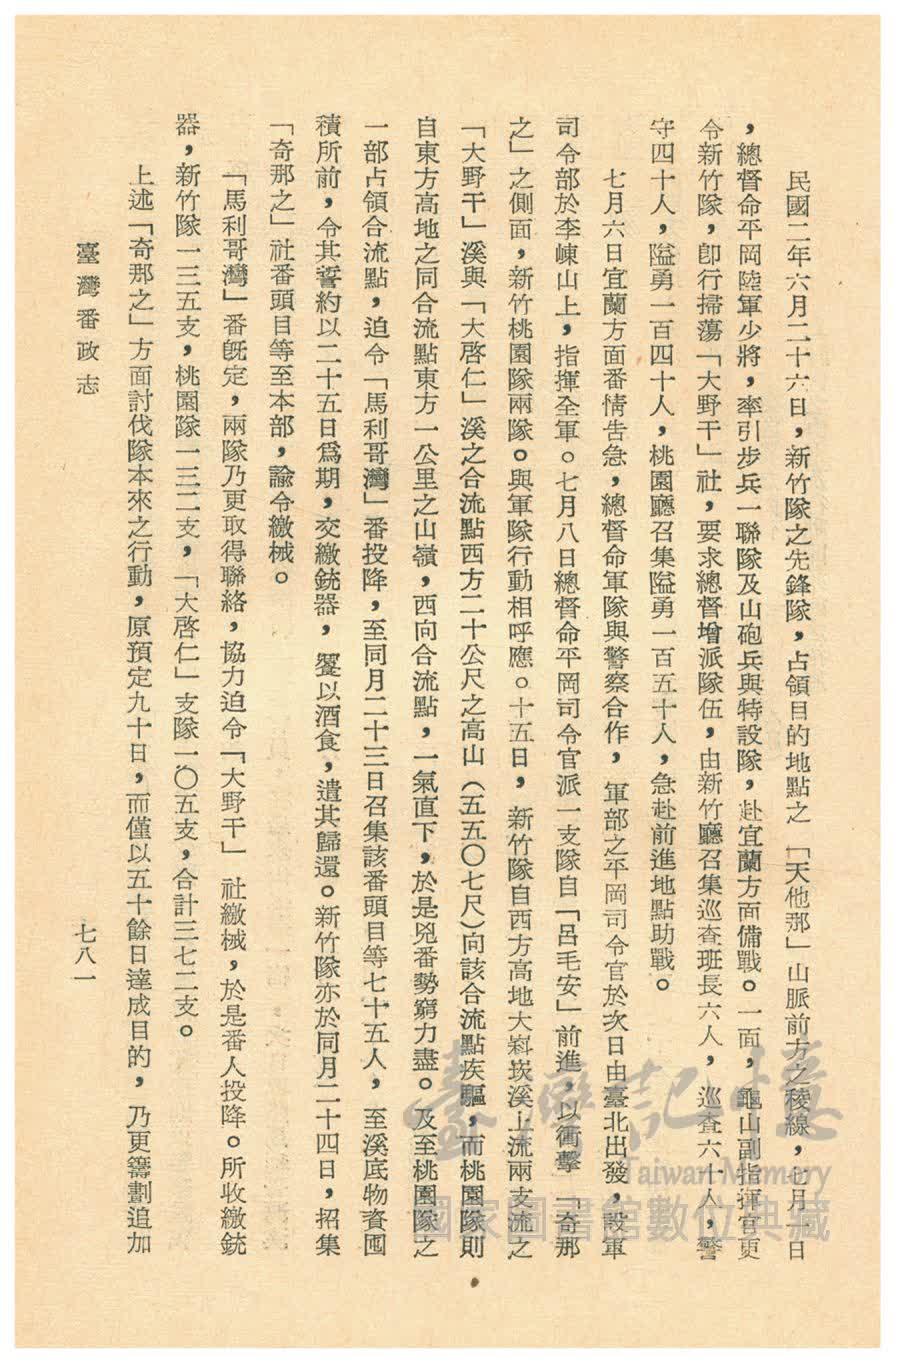 民國二年六月二十六日，新竹隊之先鋒隊，占領目的地點之「天他那」山脈前方之稜線，七月一日
，總督命平岡陸軍少將，率引步兵一聯隊及山砲兵與特設隊，赴宜蘭方面備戰。一面，龜山副指揮官更
令新竹隊，卽行掃蕩「大野干」社，要求總督增派隊伍，由新竹廳召集巡查班長六人，巡查六十人，警
守四十人，隘勇一百四十人，桃園廳召集隘勇一百五十人，急赴前進地點助戰。
七月六日宜蘭方面番情告急，總督命軍隊與警察合作，軍部之平岡司令官於次日由臺北出發，設軍
司令部於李崠山上，指揮全軍。七月八日總督命平岡司令官派一支隊自「呂毛安」前進，以衝擊「奇那
之」之側面，新竹桃園隊兩隊。與軍隊行動相呼應。十五日，新竹隊自西方高地大嵙崁溪上流兩支流之
「大野干」溪與「大啓仁」溪之合流點西方二十公尺之高山（五五〇七尺）向該合流點疾驅，而桃園隊則
自東方高地之同合流點東方一公里之山嶺，西向合流點，一氣直下，於是兇番勢窮力盡。及至桃園隊之
一部占領合流點，迫令「馬利哥灣」番投降，至同月二十三日召集該番頭目等七十五人，至溪底物資囤
積所前，令其誓約以二十五日爲期，交繳銃器，饗以酒食，遣其歸還。新竹隊亦於同月二十四日，招集
「奇那之」社番頭目等至本部，諭令繳械。
「馬利哥灣」番旣定，兩隊乃更取得聯絡，協力迫令「大野干」社繳械，於是番人投降。所收繳銃
器，新竹隊一三五支，桃園隊一三二支，「大啓仁」支隊一〇五支，合計三七二支。
上述「奇那之」方面討伐隊本來之行動，原預定九十日，而僅以五十餘日達成目的，乃更籌劃追加
臺灣番政志
七八一
臺灣記憶
Taiwan Memory
國家圖書館數位典藏